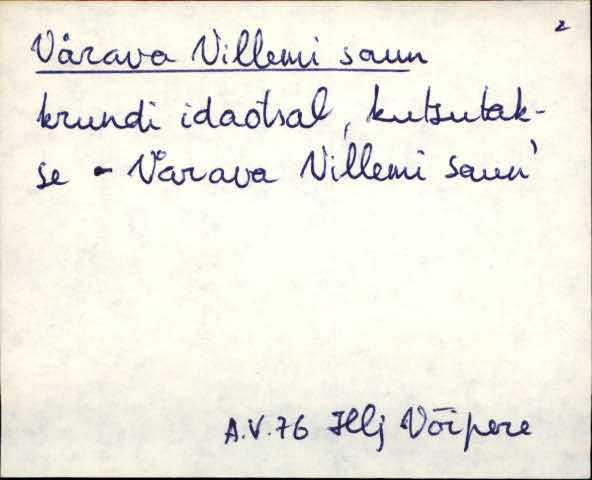 2
Vårava Villemi saun
krundi idaotsal, kutsutak-
se - Vårava Villemi saun'
A.V.76 Hlj Võipere